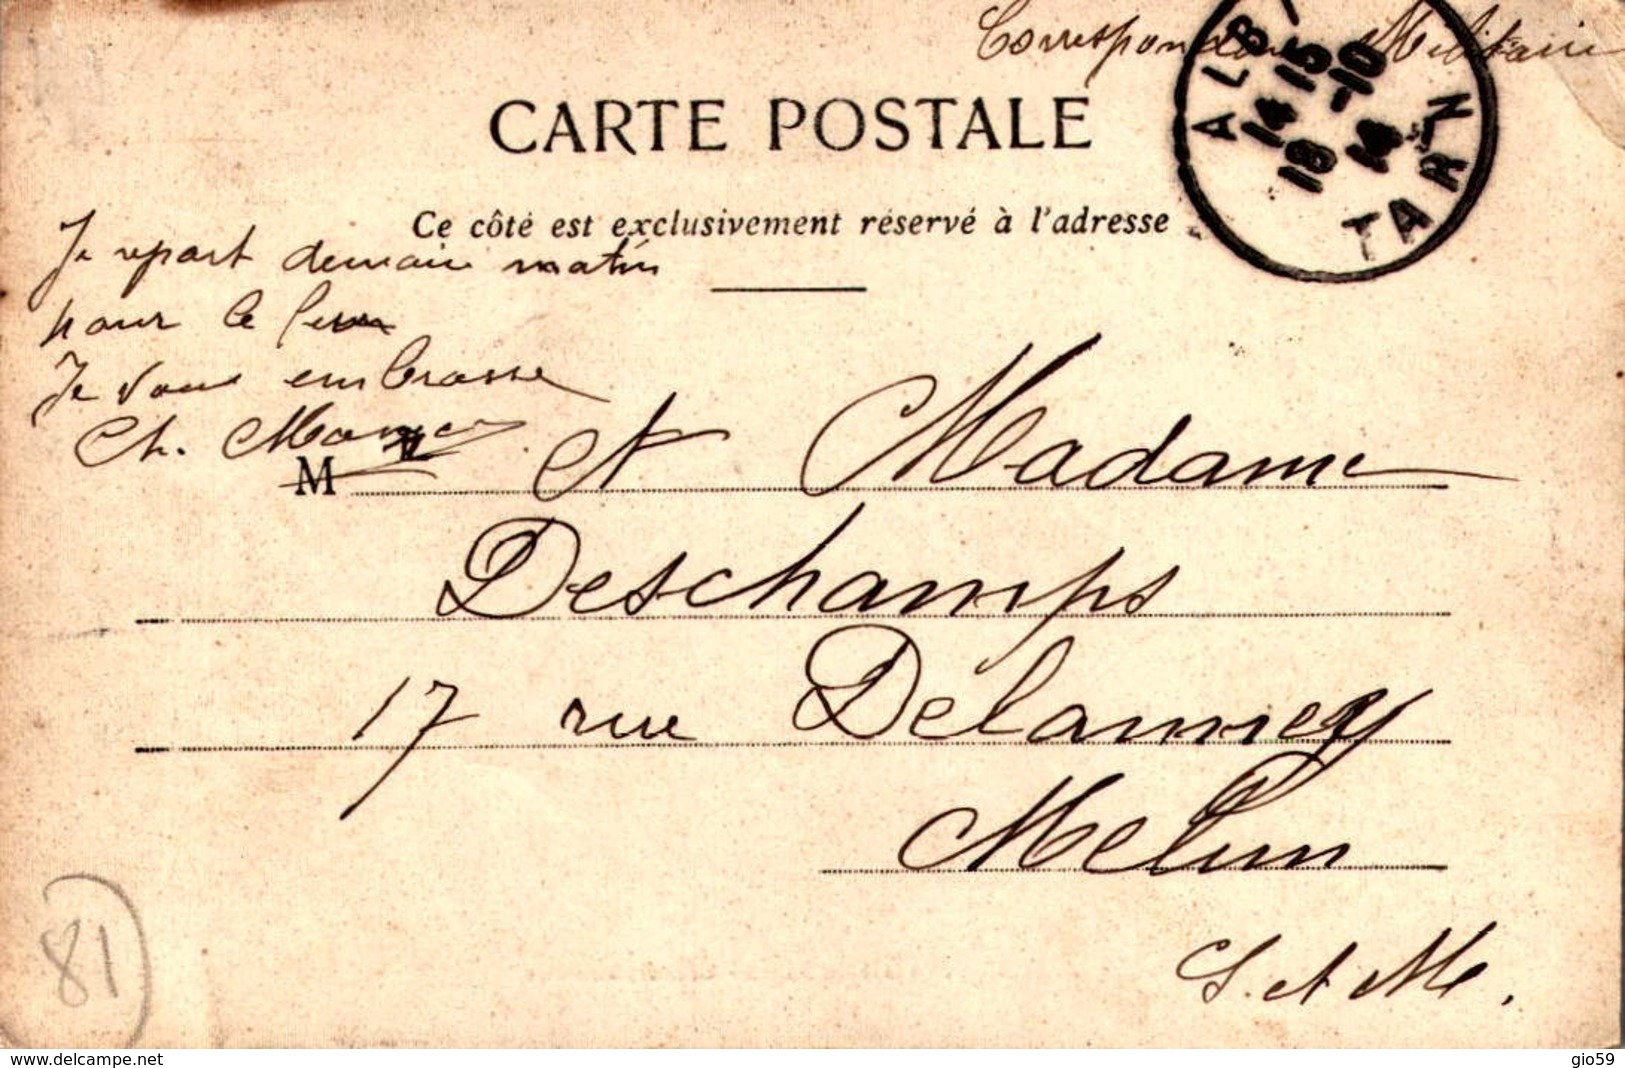 Correspondance Militaire
ALBI
14 15
18 -10
14
TARN
CARTE POSTALE
Ce côté est exclusivement réservé à l'adresse
Je repart demain matin
pour le feu
Je vous embrasse
Ch.
M et Madame
Deschamps
17 rue Delaunoy
Melun
S. et M.
81
delcampe.net
gio59